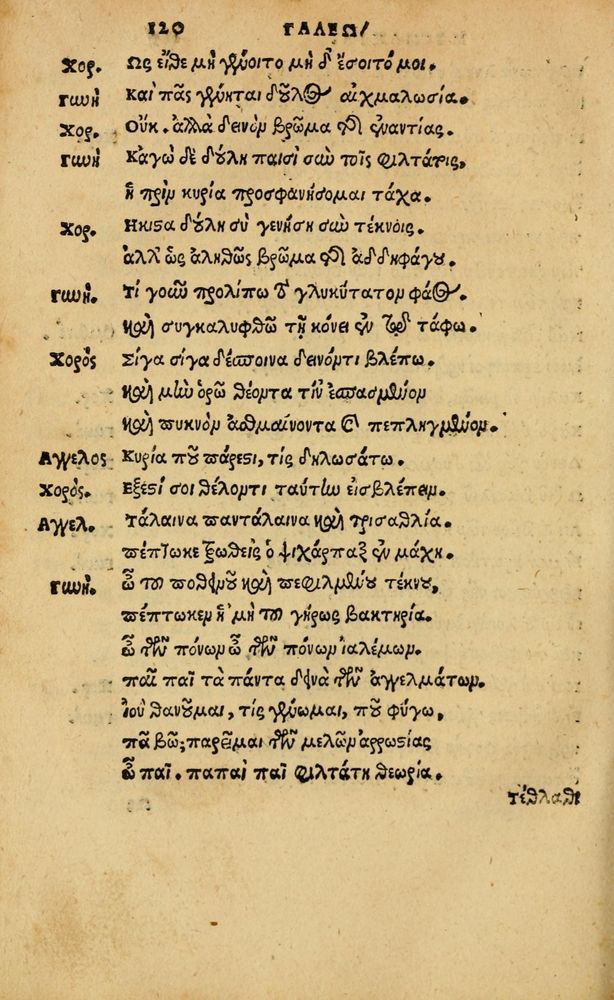 120 ΓΑΛΕΩ/
Χορ. Ως εἴθε μὴ γένοιτο μὴ δ' ἔσοιτό μοι.
Γυνὴ Καὶ πᾶς γένηται δοῦλος αἰχμαλωσία.
Χορ. Οὔκ. ἀλλὰ δεινὸν βρῶμα τῆς ἐναντίας.
Γυνὴ Κἀγὼ δὲ δούλη παισὶ σὺν τοῖς φιλτάτοις,
ἡ πρὶν κυρία προσφανήσομαι τάχα.
Χορ. Ηκιστα δούλη σὺ γενήσῃ σὺν τέκνοις.
ἀλλ' ὡς ἀληθῶς βρῶμα τῆς ἀδδηφάγου.
Γυνὴ. Τί γοῦν προλίπω τὸ γλυκύτατον φάος.
καὶ συγκαλυφθῶ τῇ κόνει ἐν τῷ τάφω.
Χορὸς Σίγα σίγα δέσποινα δεινόν τι βλέπω.
καὶ μὴν ὁρῶ θέοντα τὶν' ἐσπασμένον
καὶ πυκνὸν ἀσθμαίνοντα καὶ πεπληγμένον.
Αγγελος Κυρία ποῦ πάρεστι, τίς δηλωσάτω.
Χορὸς. Εξεστί σοι θέλοντι ταύτην εἰσβλέπειν.
Αγγελ. Τάλαινα παντάλαινα καὶ τρισαθλία.
πέπτωκε ξωθεὶς ὁ ψιχάρπαξ ἐν μάχη.
Γυνὴ. ὦ τοῦ ποθεινοῦ καὶ πεφιλμένου τέκνου,
πέπτωκεν ἡ 'μὴ τοῦ γήρως βακτηρία.
ὦ τῶν πόνων ὦ τῶν πόνων ἰαλέμων.
παῖ παῖ τὰ πάντα δεινὰ τῶν ἀγγελμάτων.
Ἰοὺ θανοῦμαι, τίς γένωμαι, ποῦ φύγω,
πᾶ βῶ; παρεῖμαι τῶν μελῶν ἀρρωστίας
ὦ παῖ. παπαὶ παῖ φιλτάτη θεωρία.
τέθλαθι